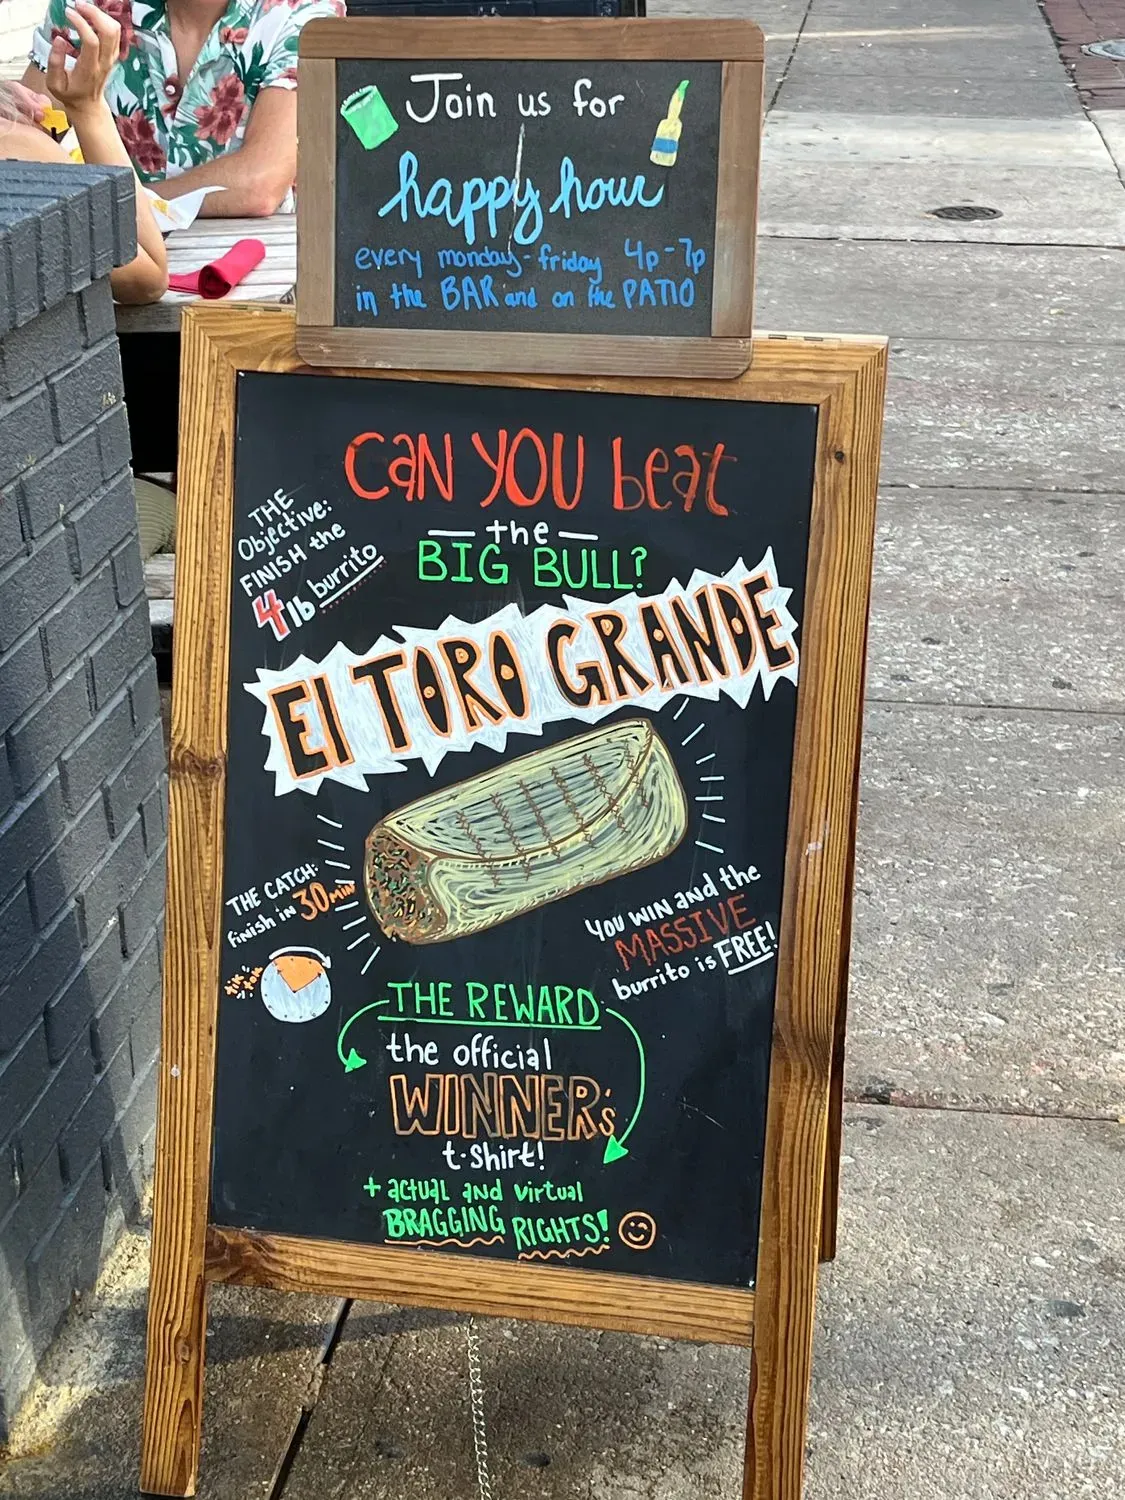 Join us for
happy hour
every monday-friday 4p-7p
in the BAR and on the PATIO
CAN YOU beat
— the —
BIG BULL?
THE
Objective:
FINISH the
4 lb burrito
El TORO GRANDE
THE CATCH:
finish in 30 min
tik
tok
YOU WIN and the
MASSIVE
burrito is FREE!
THE REWARD
the official
WINNER's
t-shirt!
+ actual and virtual
BRAGGING RIGHTS!